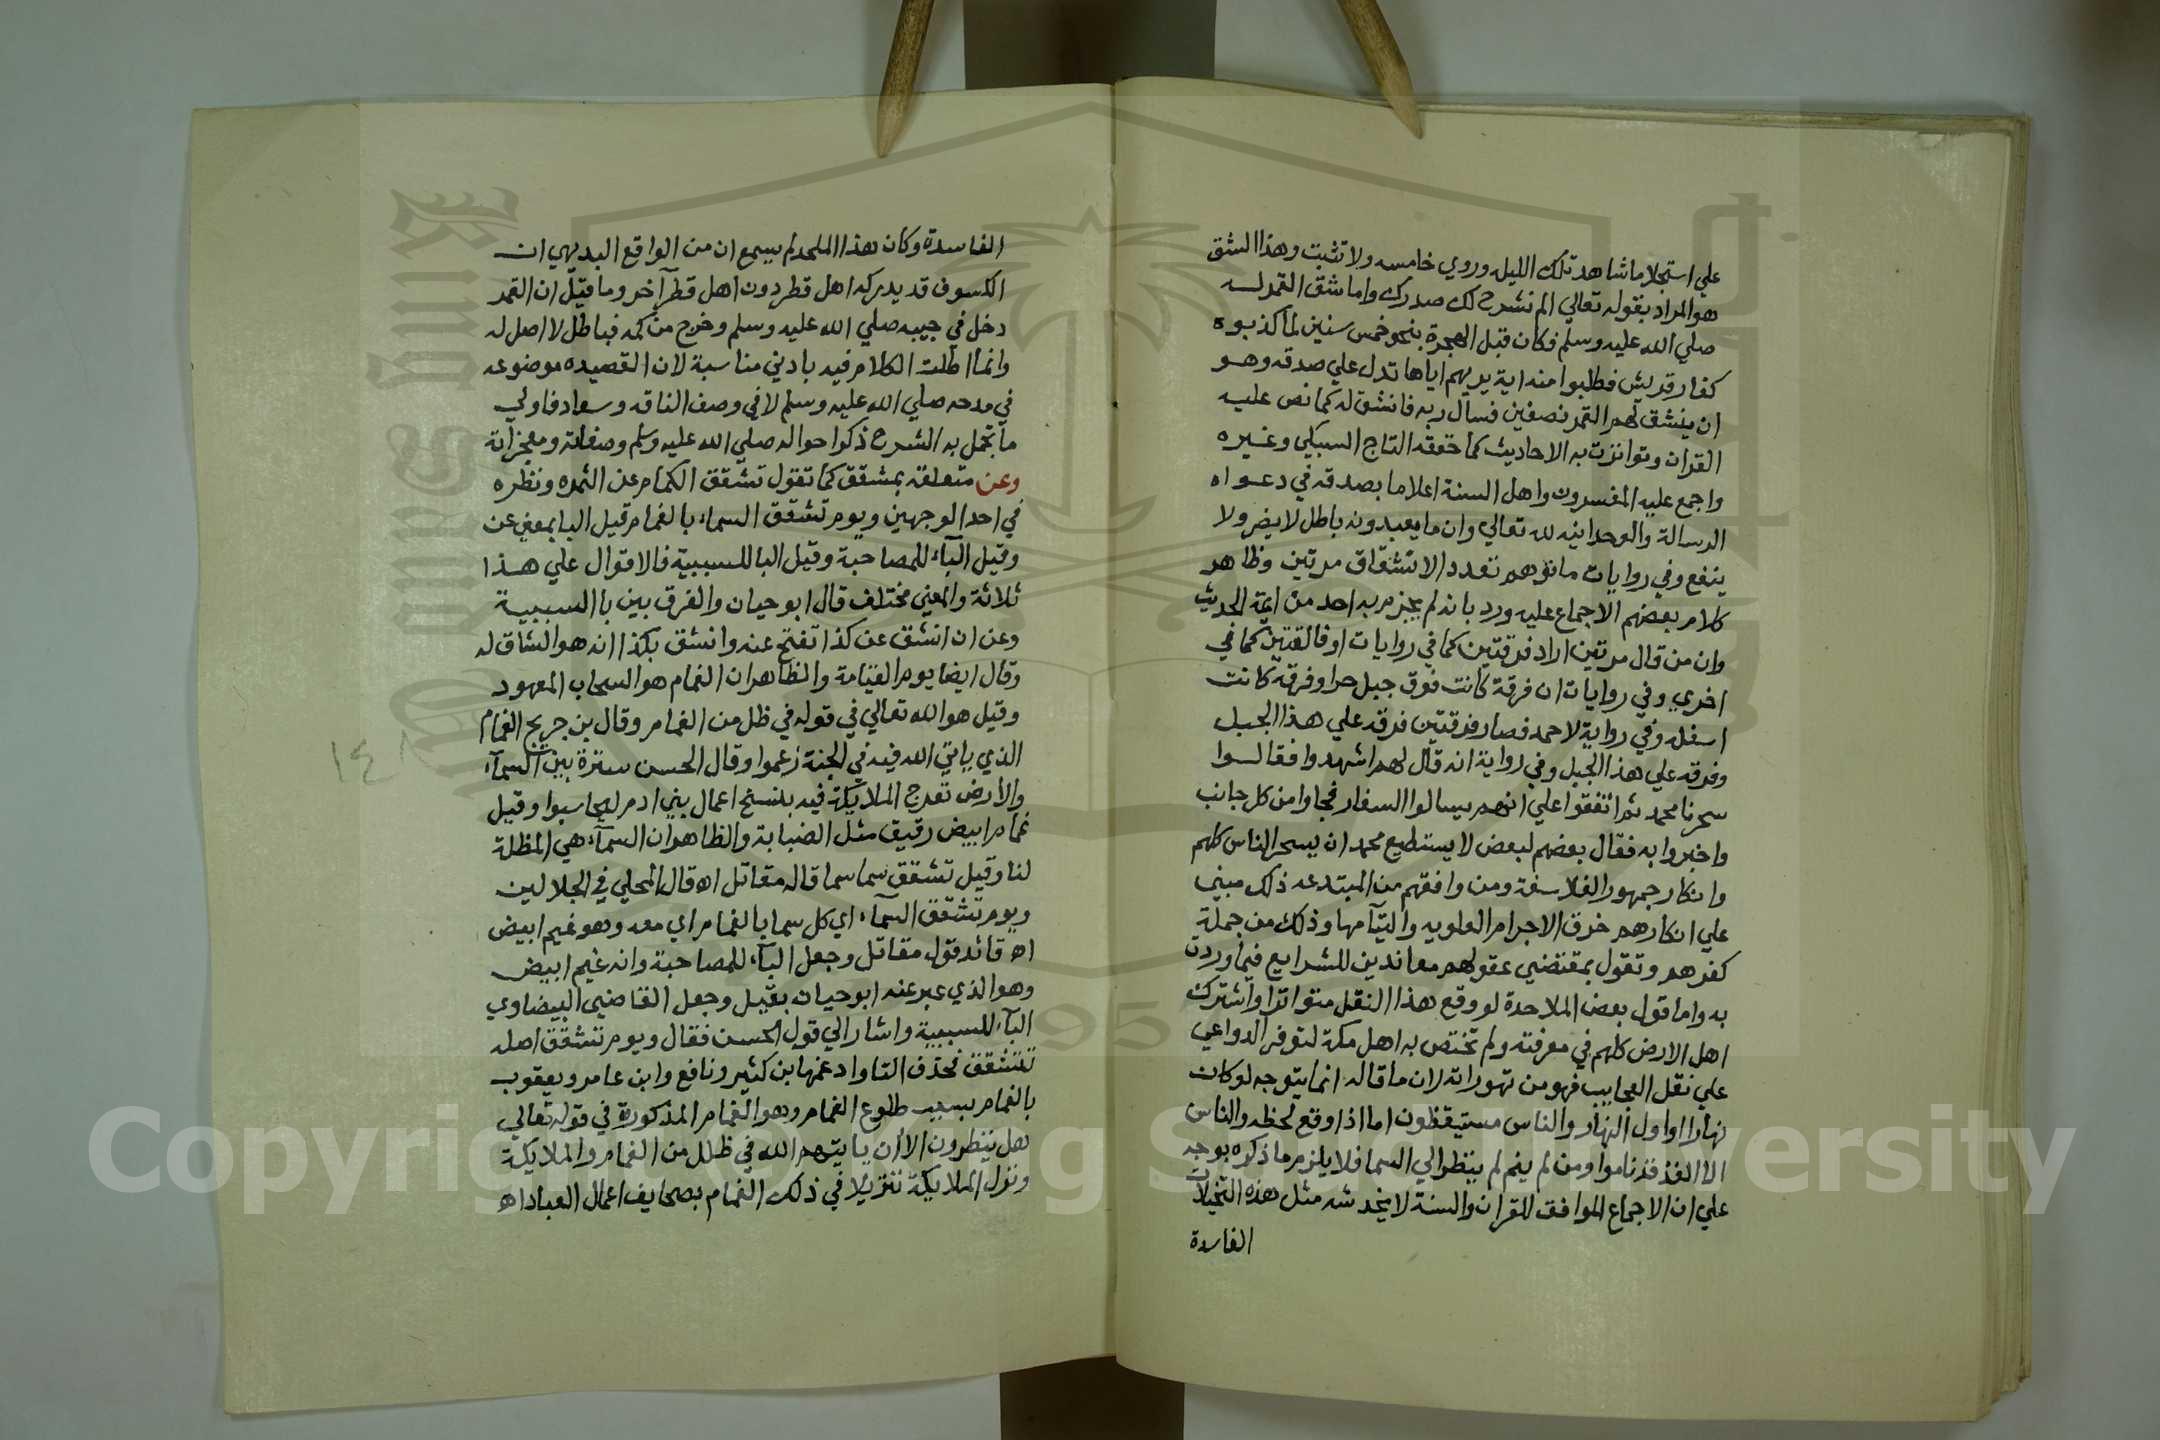 علي استجلا ما شاهد تلك الليله وروي خامسه ولا تثبت وهذا الشق
هو المراد بقوله تعالي الم نشرح لك صدرك واما شق القمر له
صلي الله عليه وسلم فكان قبل الهجرة بنحو خمس سنين لما كذبوه
كفار قريش فطلبوا منه اية يريهم اياها تدل علي صدقه وهو
ان ينشق لهم القمر نصفين فسال ربه فانشق له كما نص عليه
القران وتواترت به الاحاديث كما حققه التاج السبكي وغيره
واجمع عليه المفسرون واهل السنة اعلاما بصدقه في دعواه
الرسالة والوحدانيه لله تعالي وان ما يعبدونه باطل لا يضر ولا
ينفع وفي روايات ما يؤهم تعدد الانشقاق مرتين وظاهر
كلام بعضهم الاجماع عليه ورد بانه لم يجزم به احد من ايمة الحديث
وان من قال مرتين اراد فرقتين كما في روايات او فالقتين كما في
اخري وفي روايات ان فرقة كانت فوق جبل حرا وفرقة كانت
اسفله وفي رواية لاحمد فصار فرقتين فرقه علي هذا الجبل
وفرقه علي هذا الجبل وفي رواية انه قال لهم اشهدوا فقالوا
سحرنا محمد ثم اتفقوا علي انهم يسالوا السفار فجاوا من كل جانب
واخبروا به فقال بعضهم لبعض لا يستطيع محمد ان يسحر الناس كلهم
وانكار جمهور الفلاسفة ومن وافقهم من المبتدعه ذلك مبني
علي انكارهم خرق الاجرام العلويه والتيآمها وذلك من جملة
كفرهم وتقول بمقتضي عقولهم معاندين للشرايع فيما وردت
به واما قول بعض الملاحدة لو وقع هذا النقل متواترا واشترك
اهل الارض كلهم في معرفته ولم تختص به اهل مكة لتوفر الدواعي
علي نقل العجايب فهو من تهوراته لان ما قاله انما يتوجه لو كان
نهارا او اول النهار والناس مستيقظون اما اذا وقع لحظه والناس
الا الفذ قد ناموا ومن لم ينم لم ينظر الي السما فلا يلزم ما ذكره بوجه
علي ان الاجماع الموافق للقران والسنة لا يخدشه مثل هذه التخيلات
الفاسدة
الفاسدة وكان هذا الملحد لم يسمع ان من الواقع البديهي ان
الكسوف قد يدركه اهل قطر دون اهل قطر آخر وما قيل ان القمر
دخل في جيبه صلي الله عليه وسلم وخرج من كمه فباطل لا اصل له
وانما اطلت الكلام فيه بادني مناسبة لان القصيده موضوعه
في مدحه صلي الله عليه وسلم لا في وصف الناقه وسعاد فاولي
ما تجمل به الشرح ذكر احواله صلي الله عليه وسلم وصفاته ومعجزاته
وعن متعلقه بمشقق كما تقول تشقق الكمام عن الثمره ونظره
في احد الوجهين ويوم تشقق السماء بالغمام قيل البا بمعني عن
وقيل البآء للمصاحبة وقيل البا للسببية فالاقوال علي هذا
ثلاثة والمعني مختلف قال ابو حيان والفرق بين با السببية
وعن ان انشق عن كذا تفتح عنه وانشق بكذا انه هو الشاق له
وقال ايضا يوم القيامة والظاهر ان الغمام هو السحاب المعهود
وقيل هو الله تعالي في قوله في ظل من الغمام وقال بن جريج الغمام
الذي ياتي الله فيه في الجنة زعموا وقال الحسن سترة بين السمآء
والارض تعرج الملايكة فيه بلنسخ اعمال بني ادم ليحاسبوا وقيل
غمام ابيض رقيق مثل الضبابة والظاهر ان السمآء هي المظلة
لنا وقيل تشقق سما سما قاله مقاتل اه قال المحلي في الجلالين
ويوم تشقق السمآء اي كل سما بالغمام اي معه وهو غيم ابيض
اه قائد قول مقاتل وجعل البآء للمصاحبة وانه غيم ابيض
وهو الذي عبر عنه ابو حيان بقيل وجعل القاضي البيضاوي
البآء للسببية واشار الي قول الحسن فقال ويوم تشقق اصله
تتشقق فحذف التا وادغمها بن كثير ونافع وابن عامر ويعقوب
بالغمام بسبب طلوع الغمام وهو الغمام المذكورة في قوله تعالي
هل ينظرون الا ان ياتيهم الله في ظلل من الغمام والملايكة
ونزل الملايكة تنزيلا في ذلك الغمام بصحايف اعمال العباد اه
Copyright © King Saud University